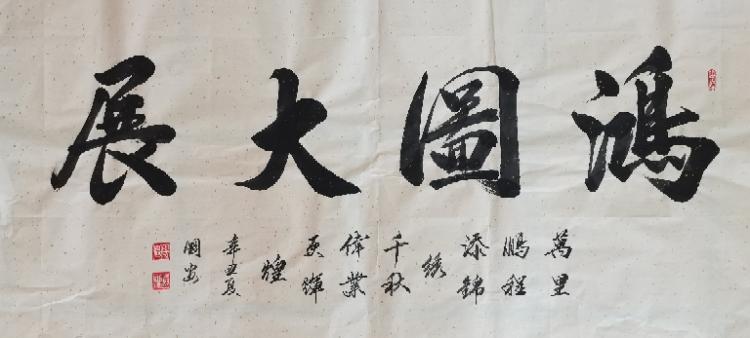 鴻圖大展
萬里
鵬程
添錦
綉
千秋
偉業
更輝
煌
辛丑夏
國安